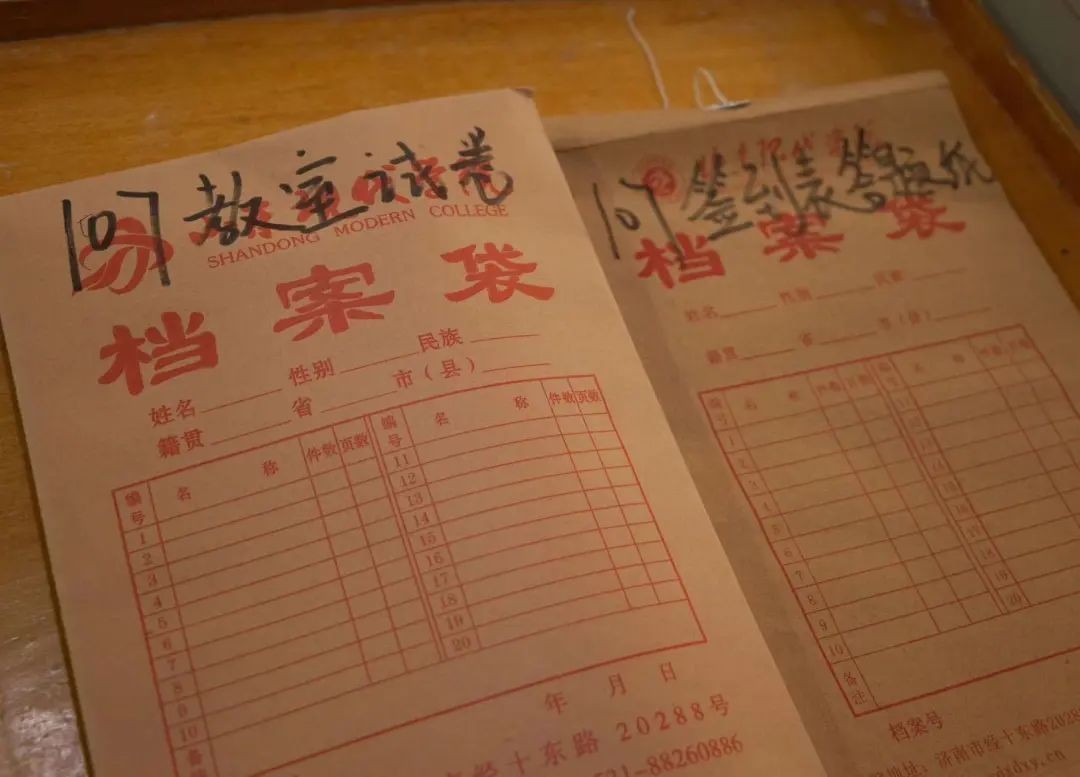 107 教室试卷
SHANDONG MODERN COLLEGE
档案袋
姓名 性别 民族
籍贯 省 市（县）
编号 名称 件数 页数 编号 名称 件数 页数
1 11
2 12
3 13
4 14
5 15
6 16
7 17
8 18
9 19
10 20
备
年 月 日
经十东路 20288号
31-88260886
107 签到表 答题纸
档案袋
姓名 性别 民族
籍贯 省 市（县）
编号 名称 件数 页数 编号 名称 件数 页数
1
2
3
4
5
6
7
8
9
10
12
13
14
15
16
17
18
19
20
备注
档案号
地址：济南市经十东路20288